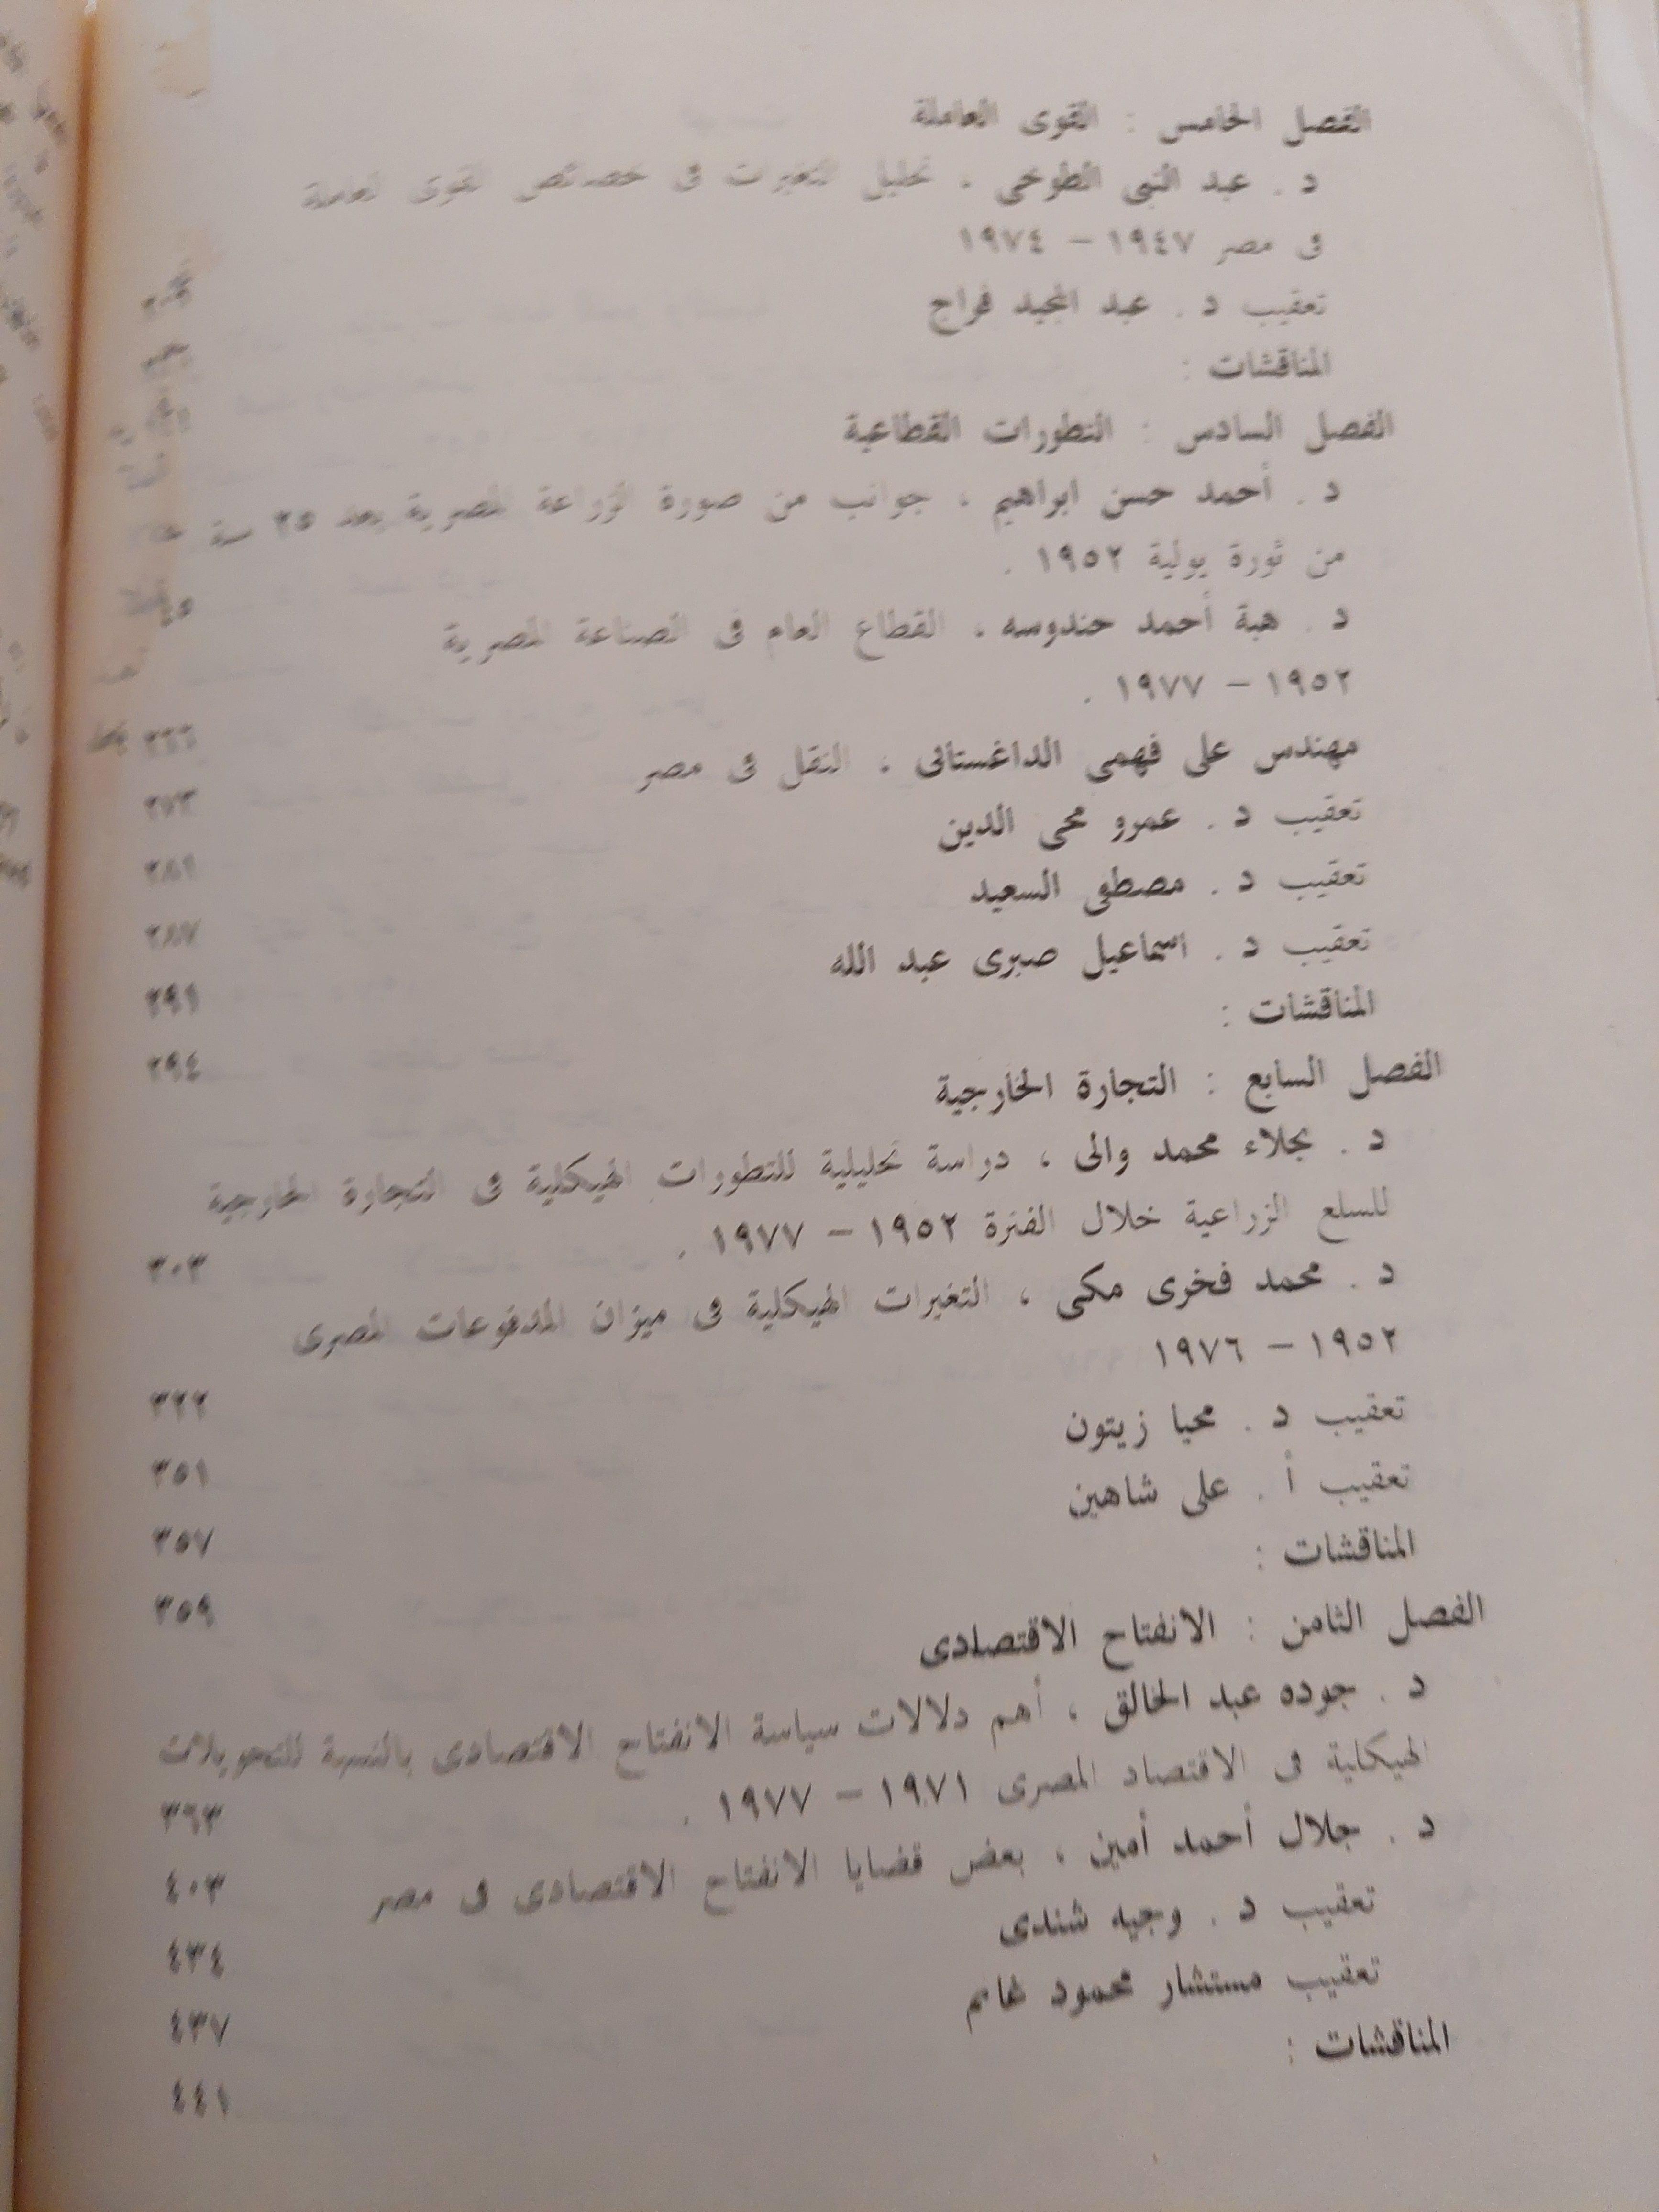 الفصل الخامس : القوى العاملة
د . عبد النبى الطوخى ، تحليل التغيرات فى خصائص القوى العاملة
فى مصر ١٩٤٧ – ١٩٧٤
تعقيب د . عبد المجيد فراج
المناقشات :
الفصل السادس : التطورات القطاعية
د . أحمد حسن ابراهيم ، جوانب من صورة الزراعة المصرية بعد ٢٥ سنة
من ثورة يولية ١٩٥٢ .
د . هبة أحمد حندوسه ، القطاع العام فى الصناعة المصرية
١٩٥٢ – ١٩٧٧ .
مهندس على فهمى الداغستانى ، النقل فى مصر ٢٧٣
تعقيب د . عمرو محى الدين ٢٨١
تعقيب د . مصطفى السعيد ٢٨٧
تعقيب د . اسماعيل صبرى عبد الله ٢٩١
المناقشات : ٢٩٤
الفصل السابع : التجارة الخارجية
د . نجلاء محمد والى ، دراسة تحليلية للتطورات الهيكلية فى التجارة الخارجية
للسلع الزراعية خلال الفترة ١٩٥٢ – ١٩٧٧ . ٣٠٣
د . محمد فخرى مكى ، التغيرات الهيكلية فى ميزان المدفوعات المصرى
١٩٥٢ – ١٩٧٦ ٣٢٢
تعقيب د . محيا زيتون ٣٥١
تعقيب أ . على شاهين ٣٥٧
المناقشات : ٣٥٩
الفصل الثامن : الانفتاح الاقتصادى
د . جوده عبد الخالق ، أهم دلالات سياسة الانفتاح الاقتصادى بالنسبة للتحويلات
الهيكلية فى الاقتصاد المصرى ١٩٧١ – ١٩٧٧ . ٣٦٣
د . جلال أحمد أمين ، بعض قضايا الانفتاح الاقتصادى فى مصر ٤٠٣
تعقيب د . وجيه شندى ٤٣٤
تعقيب مستشار محمود غانم ٤٣٧
المناقشات : ٤٤١